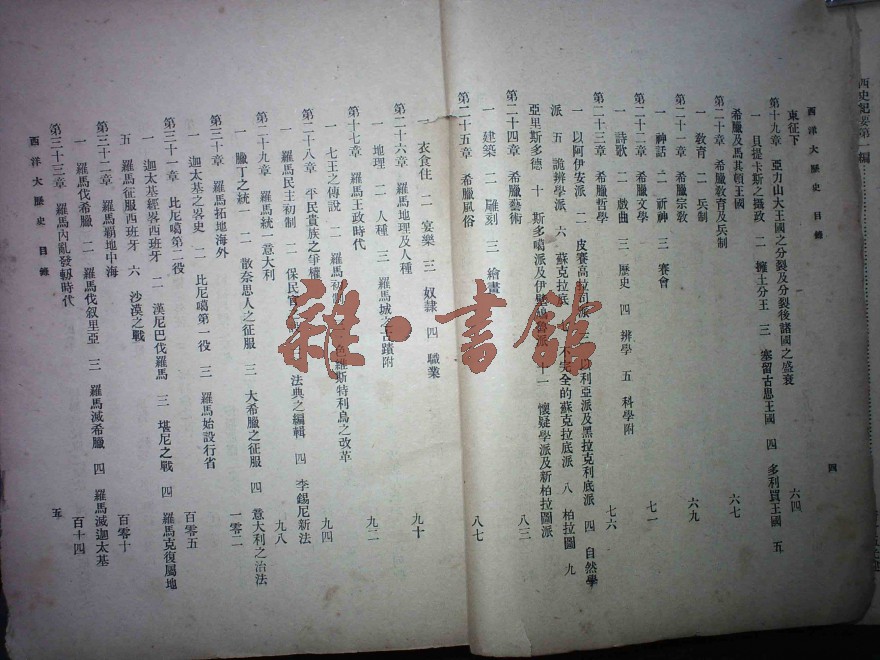 西史紀要第一編
西洋大歷史 目錄
四
東征下 六四
第十九章 亞力山大王國之分裂及分裂後諸國之盛衰
一 貝提卡斯之攝政 二 擁土分王 三 塞留古息王國 四 多利買王國 五
希臘及馬其頓王國 六七
第二十章 希臘教育及兵制
一 教育 二 兵制 六九
第二十一章 希臘宗教
一 神話 二 祈神 三 賽會 七一
第二十二章 希臘文學
一 詩歌 二 戲曲 三 歷史 四 辨學 五 科學附 七六
第二十三章 希臘哲學
一 以阿伊安派 二 皮賽高拉司派 三 以利亞派及黑拉克利底派 四 自然學
派 五 詭辨學派 六 蘇克拉底 七 不完全的蘇克拉底派 八 柏拉圖 九
亞里斯多德 十 斯多噶派及伊壁鳩魯派 十一 懷疑學派及新柏拉圖派 八三
第二十四章 希臘藝術
一 建築 二 雕刻 三 繪畫 八七
第二十五章 希臘風俗
一 衣食住 二 宴樂 三 奴隸 四 職業 九十
第二十六章 羅馬地理及人種
一 地理 二 人種 三 羅馬城之古蹟附 九二
第十七章 羅馬王政時代
一 七王之傳說 二 羅馬初制 三 色維斯特利烏之改革 九四
第二十八章 平民貴族之爭權
一 羅馬民主初制 二 保民官 法典之編輯 四 李錫尼新法 九八
第二十九章 羅馬統一意大利
一 臘丁之統一 二 散奈思人之征服 三 大希臘之征服 四 意大利之治法 一零二
第三十章 羅馬拓地海外
一 迦太基之畧史 二 比尼噶第一役 三 羅馬始設行省 百零五
第三十一章 比尼噶第二役
一 迦太基經畧西班牙 二 漢尼巴伐羅馬 三 堪尼之戰 四 羅馬克復屬地
五 羅馬征服西班牙 六 沙漠之戰 百零十
第三十二章 羅馬覇地中海
一 羅馬伐希臘 二 羅馬伐叙里亞 三 羅馬滅希臘 四 羅馬滅迦太基 百十四
第三十三章 羅馬內亂發軔時代
西洋大歷史 目錄
五
雜·書館